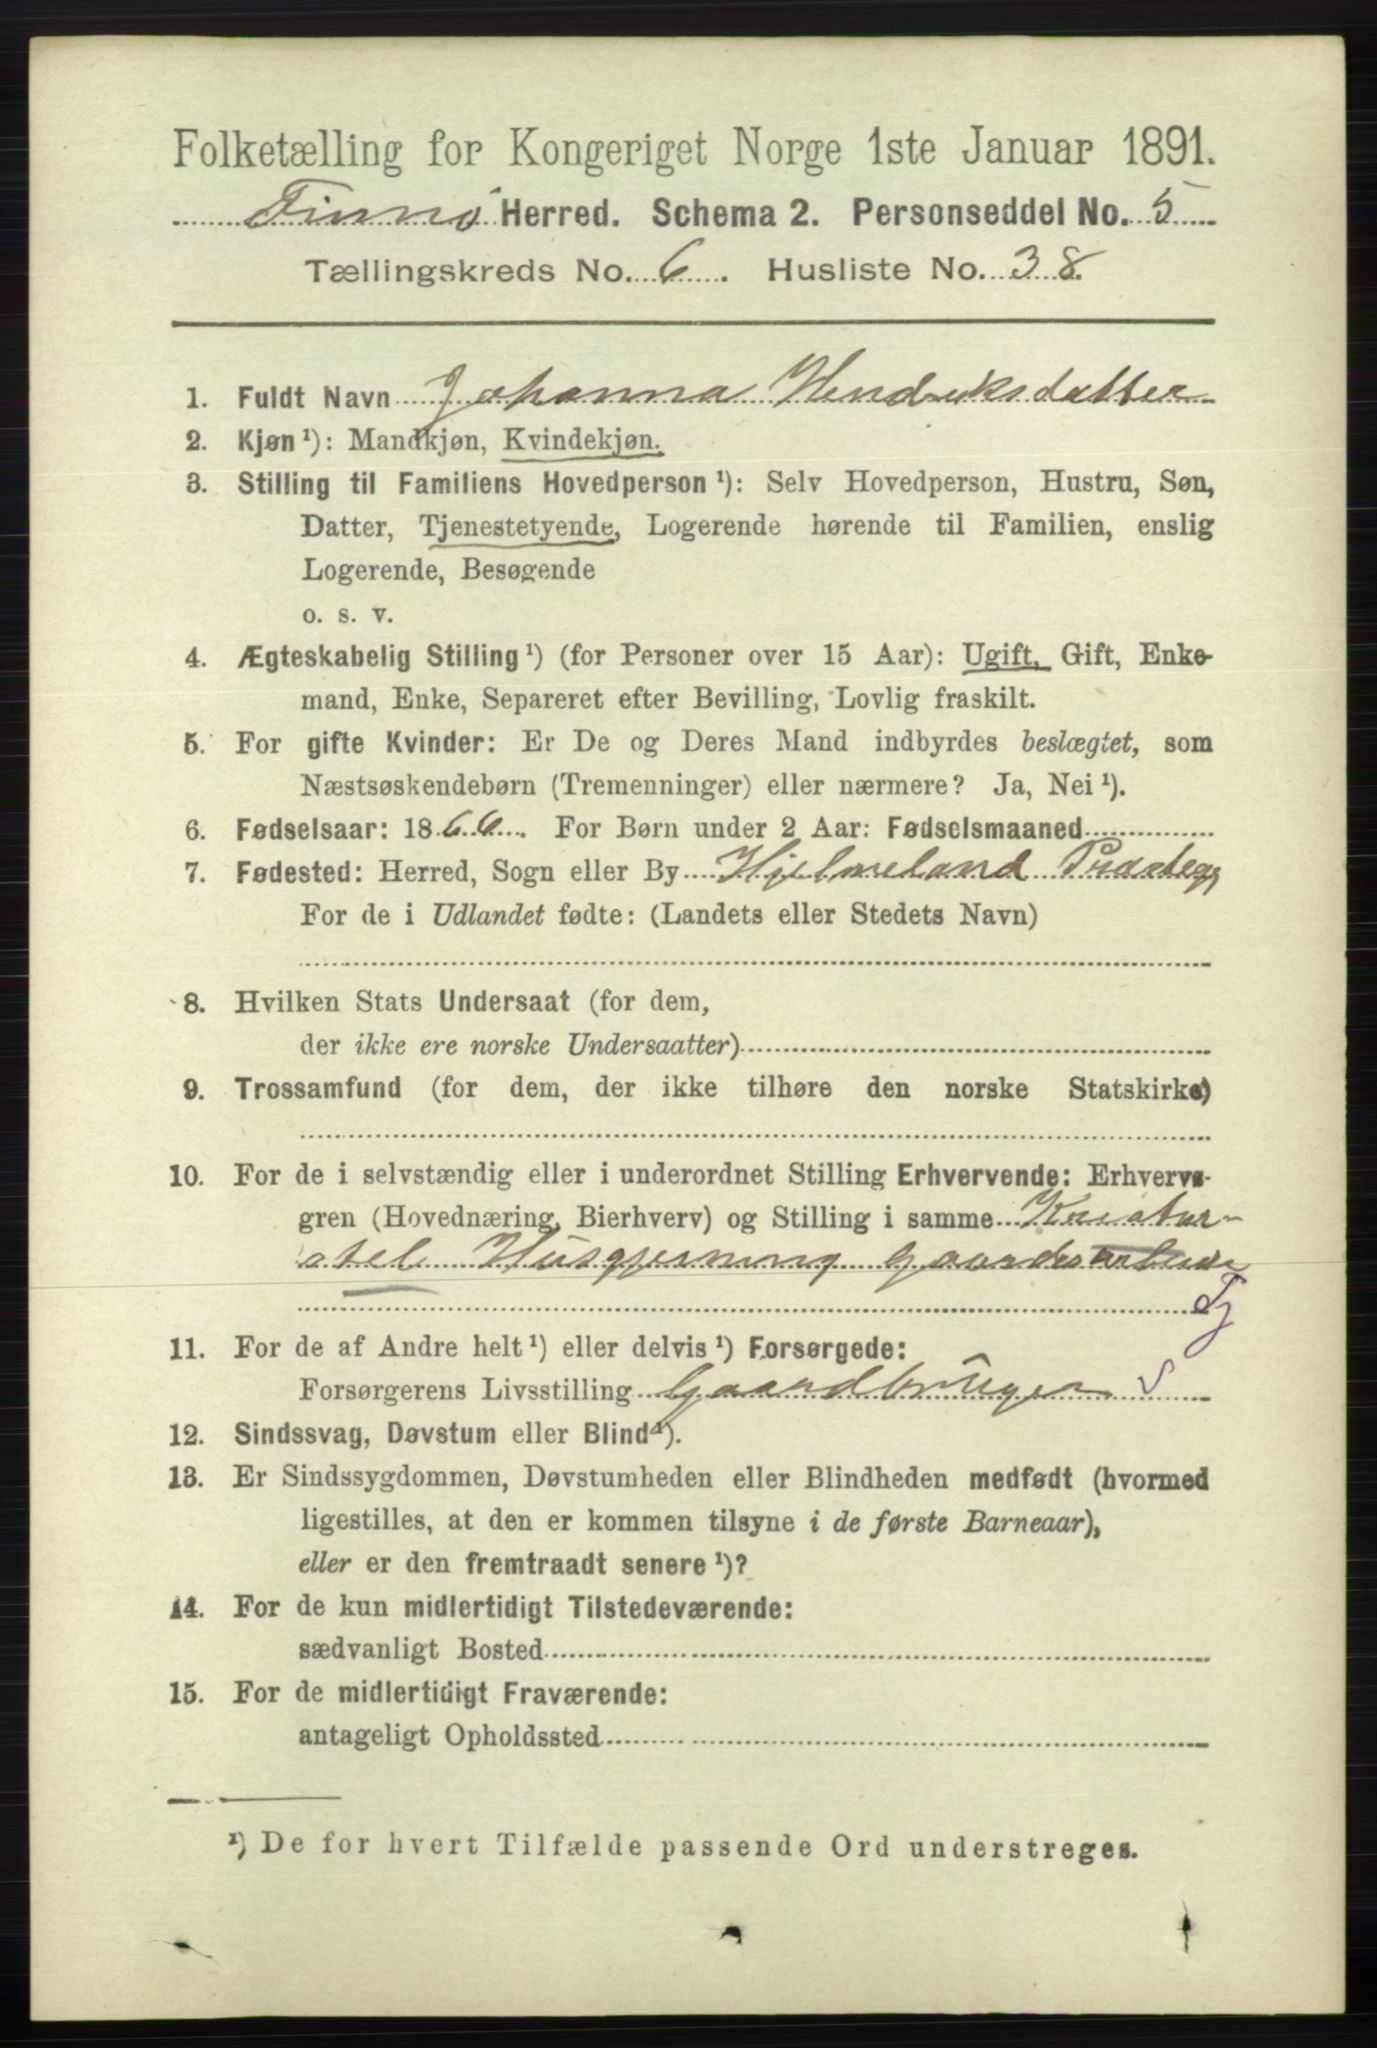 Folketælling for Kongeriget Norge 1ste Januar 1891.
Finnø Herred. Schema 2. Personseddel No. 5
Tællingskreds No. 6. Husliste No. 38
1. Fuldt Navn Johanna Hendriksdatter
2. Kjøn ¹): Mandkjøn, Kvindekjøn.
3. Stilling til Familiens Hovedperson ¹): Selv Hovedperson, Hustru, Søn,
Datter, Tjenestetyende, Logerende hørende til Familien, enslig
Logerende, Besøgende
o. s. v.
4. Ægteskabelig Stilling ¹) (for Personer over 15 Aar): Ugift, Gift, Enke-
mand, Enke, Separeret efter Bevilling, Lovlig fraskilt.
5. For gifte Kvinder: Er De og Deres Mand indbyrdes beslægtet, som
Næstsøskendebørn (Tremenninger) eller nærmere? Ja, Nei ¹).
6. Fødselsaar: 1866. For Børn under 2 Aar: Fødselsmaaned
7. Fødested: Herred, Sogn eller By Hjelmeland Præsteg
For de i Udlandet fødte: (Landets eller Stedets Navn)
8. Hvilken Stats Undersaat (for dem,
der ikke ere norske Undersaatter)
9. Trossamfund (for dem, der ikke tilhøre den norske Statskirke)
10. For de i selvstændig eller i underordnet Stilling Erhvervende: Erhvervs-
gren (Hovednæring, Bierhverv) og Stilling i samme Kreatur-
stel Husgjerning Gaardsarbeide
Tj
11. For de af Andre helt ¹) eller delvis ¹) Forsørgede:
Forsørgerens Livsstilling Gaardbruger S
12. Sindssvag, Døvstum eller Blind ¹).
13. Er Sindssygdommen, Døvstumheden eller Blindheden medfødt (hvormed
ligestilles, at den er kommen tilsyne i de første Barneaar),
eller er den fremtraadt senere ¹)?
14. For de kun midlertidigt Tilstedeværende:
sædvanligt Bosted
15. For de midlertidigt Fraværende:
antageligt Opholdssted
¹) De for hvert Tilfælde passende Ord understreges.